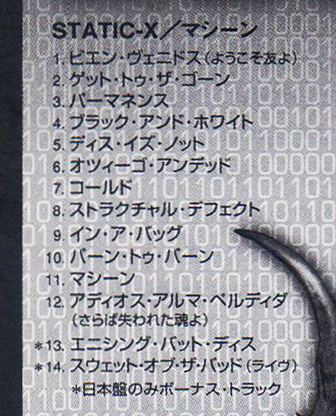 STATIC-X／マシーン
1. ビエン・ヴェニドス(ようこそ友よ)
2. ゲット・トゥ・ザ・ゴーン
3. パーマネンス
4. ブラック・アンド・ホワイト
5. ディス・イズ・ノット
6. オツィーゴ・アンデッド
7. コールド
8. ストラクチャル・デフェクト
9. イン・ア・バッグ
10. バーン・トゥ・バーン
11. マシーン
12. アディオス・アルマ・ペルディダ
(さらば失われた魂よ)
*13. エニシング・バット・ディス
*14. スウェット・オブ・ザ・バッド(ライヴ)
*日本盤のみボーナス・トラック